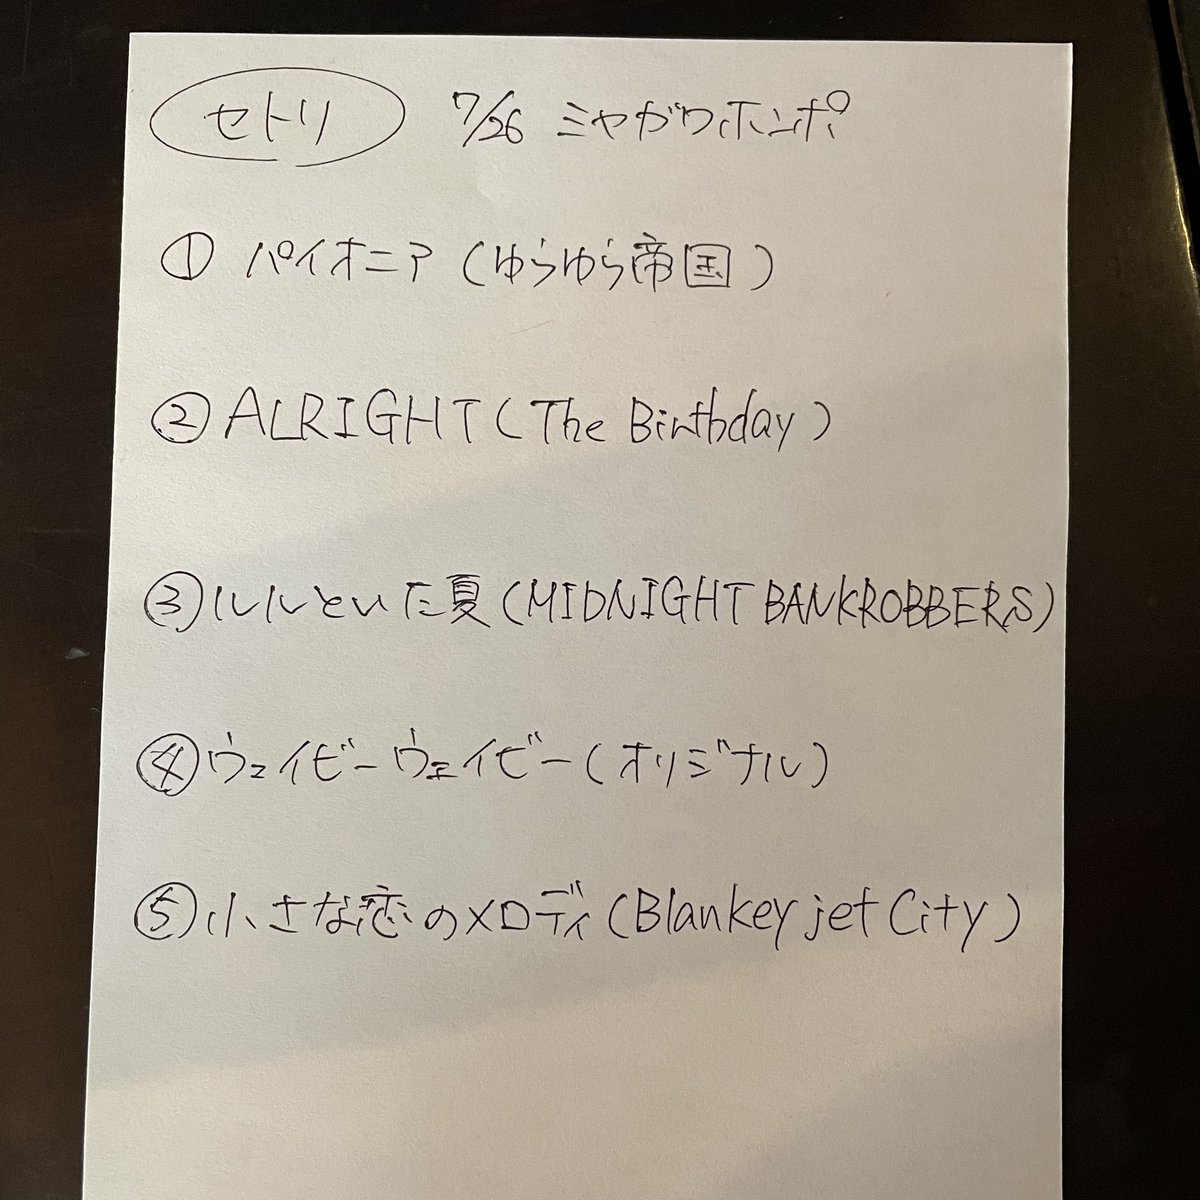 セトリ 7/26 ミヤガワホンポ
① パイオニア(ゆらゆら帝国)
② ALRIGHT(The Birthday)
③ ルルといた夏(MIDNIGHT BANKROBBERS)
④ ウェイビーウェイビー(オリジナル)
⑤ 小さな恋のメロディ(Blankey jet City)